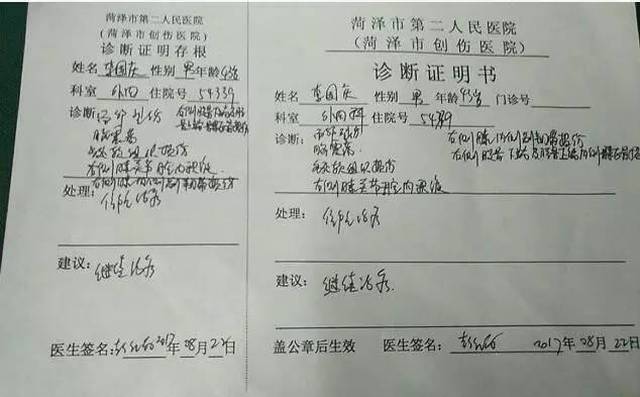 菏泽市第二人民医院
(菏泽市创伤医院)
诊断证明存根
姓名 李国庆 性别 男 年龄 43岁
科室 外四 住院号 54339
诊断:
脑震荡
多处软组织损伤
右侧膝关节腔内积液
处理:
住院治疗
建议: 继续治疗
医生签名: 2017年08月22日
菏泽市第二人民医院
(菏泽市创伤医院)
诊断证明书
姓名 李国庆 性别 男 年龄 43岁 门诊号
科室 外四科 住院号 54339
诊断:
脑震荡
多处软组织损伤
右侧膝关节腔内积液
处理: 住院治疗
建议: 继续治疗.
盖公章后生效 医生签名: 2017年08月22日